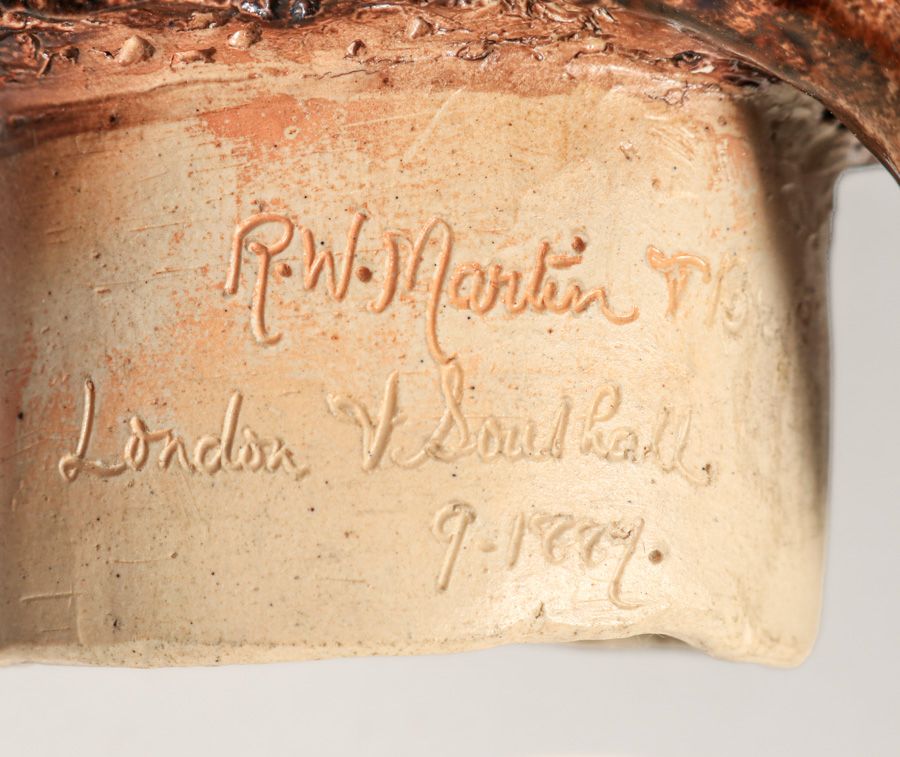 R.W. Martin &
London & Southall.